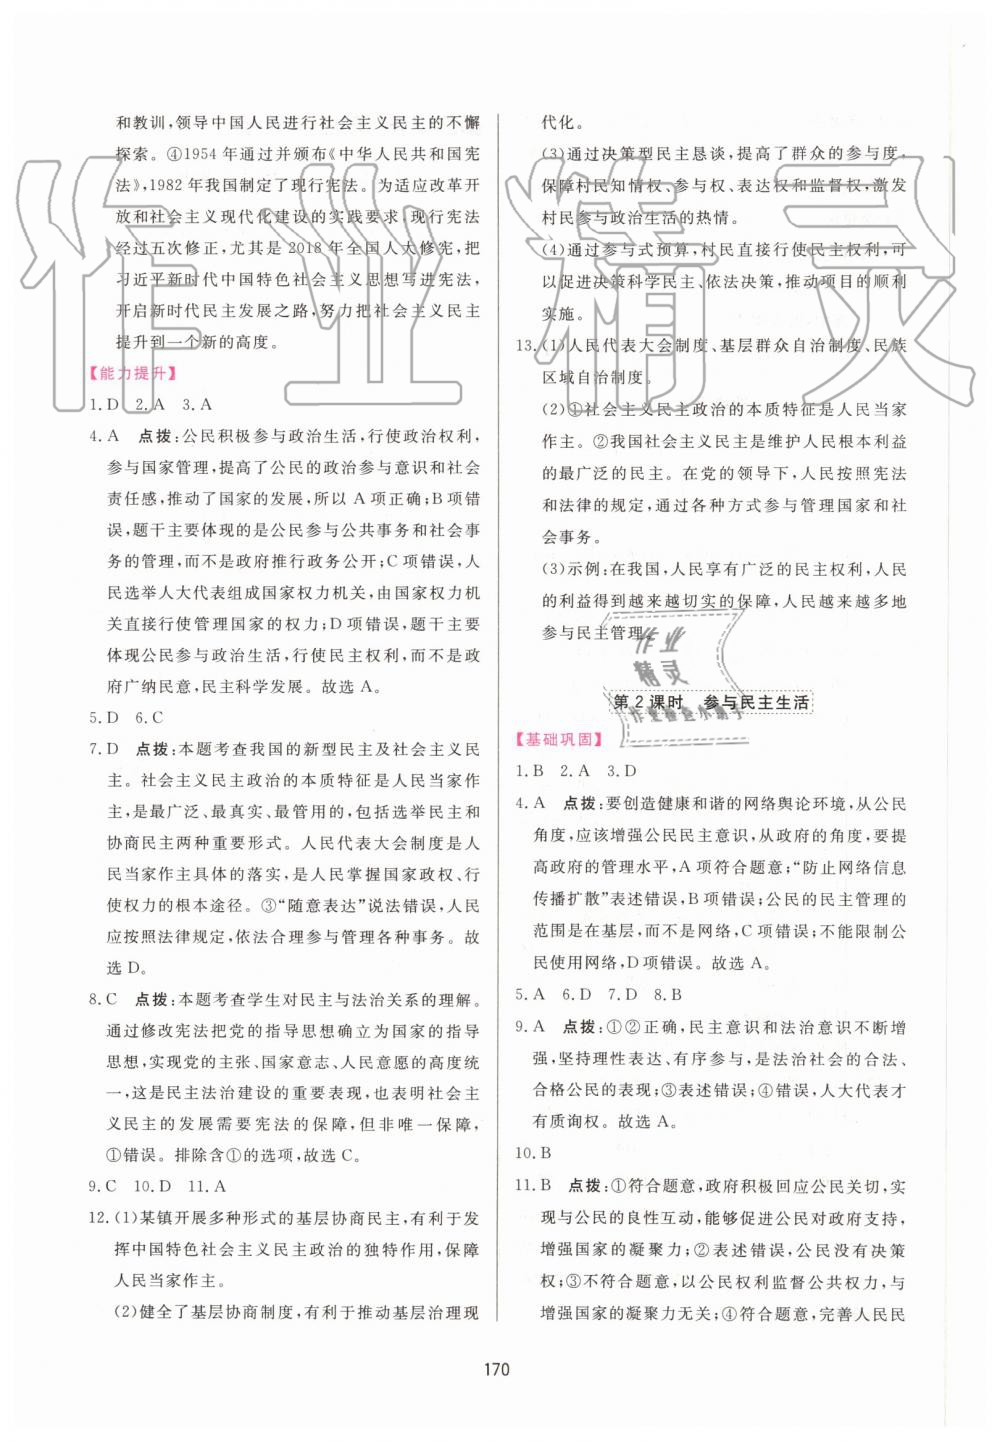 和教训,领导中国人民进行社会主义民主的不懈
探索。④1954年通过并颁布《中华人民共和国宪
法》,1982年我国制定了现行宪法。为适应改革开
放和社会主义现代化建设的实践要求,现行宪法
经过五次修正,尤其是2018年全国人大修宪,把
习近平新时代中国特色社会主义思想写进宪法,
开启新时代民主发展之路,努力把社会主义民主
提升到一个新的高度。
【能力提升】
1.D 2.A 3.A
4.A 点拨:公民积极参与政治生活,行使政治权利,
参与国家管理,提高了公民的政治参与意识和社会
责任感,推动了国家的发展,所以A项正确;B项错
误,题干主要体现的是公民参与公共事务和社会事
务的管理,而不是政府推行政务公开;C项错误,人
民选举人大代表组成国家权力机关,由国家权力机
关直接行使管理国家的权力;D项错误,题干主要
体现公民参与政治生活,行使民主权利,而不是政
府广纳民意,民主科学发展。故选A。
5.D 6.C
7.D 点拨:本题考查我国的新型民主及社会主义民
主。社会主义民主政治的本质特征是人民当家作
主,是最广泛、最真实、最管用的,包括选举民主和
协商民主两种重要形式。人民代表大会制度是人
民当家作主具体的落实,是人民掌握国家政权、行
使权力的根本途径。③“随意表达”说法错误,人民
应按照法律规定,依法合理参与管理各种事务。故
选D。
8.C 点拨:本题考查学生对民主与法治关系的理解。
通过修改宪法把党的指导思想确立为国家的指导
思想,实现党的主张、国家意志、人民意愿的高度统
一,这是民主法治建设的重要表现,也表明社会主
义民主的发展需要宪法的保障,但非唯一保障,
①错误。排除含①的选项,故选C。
9.C 10.D 11.A
12.(1)某镇开展多种形式的基层协商民主,有利于发
挥中国特色社会主义民主政治的独特作用,保障
人民当家作主。
(2)健全了基层协商制度,有利于推动基层治理现
代化。
(3)通过决策型民主恳谈,提高了群众的参与度,
保障村民知情权、参与权、表达权和监督权,激发
村民参与政治生活的热情。
(4)通过参与式预算,村民直接行使民主权利,可
以促进决策科学民主、依法决策,推动项目的顺利
实施。
13.(1)人民代表大会制度、基层群众自治制度、民族
区域自治制度。
(2)①社会主义民主政治的本质特征是人民当家
作主。②我国社会主义民主是维护人民根本利益
的最广泛的民主。在党的领导下,人民按照宪法
和法律的规定,通过各种方式参与管理国家和社
会事务。
(3)示例:在我国,人民享有广泛的民主权利,人民
的利益得到越来越切实的保障,人民越来越多地
参与民主管理。
第2课时 参与民主生活
【基础巩固】
1.B 2.A 3.D
4.A 点拨:要创造健康和谐的网络舆论环境,从公民
角度,应该增强公民民主意识,从政府的角度,要提
高政府的管理水平,A项符合题意;“防止网络信息
传播扩散”表述错误,B项错误;公民的民主管理的
范围是在基层,而不是网络,C项错误;不能限制公
民使用网络,D项错误。故选A。
5.A 6.D 7.D 8.B
9.A 点拨:①②正确,民主意识和法治意识不断增
强,坚持理性表达、有序参与,是法治社会的合法、
合格公民的表现;③表述错误;④错误,人大代表才
有质询权。故选A。
10.B
11.B 点拨:①符合题意,政府积极回应公民关切,实
现与公民的良性互动,能够促进公民对政府支持,
增强国家的凝聚力;②表述错误,公民没有决策
权;③不符合题意,以公民权利监督公共权力,与
增强国家的凝聚力无关;④符合题意,完善人民民
170
作业精灵
作业
精灵
作业检查小助手